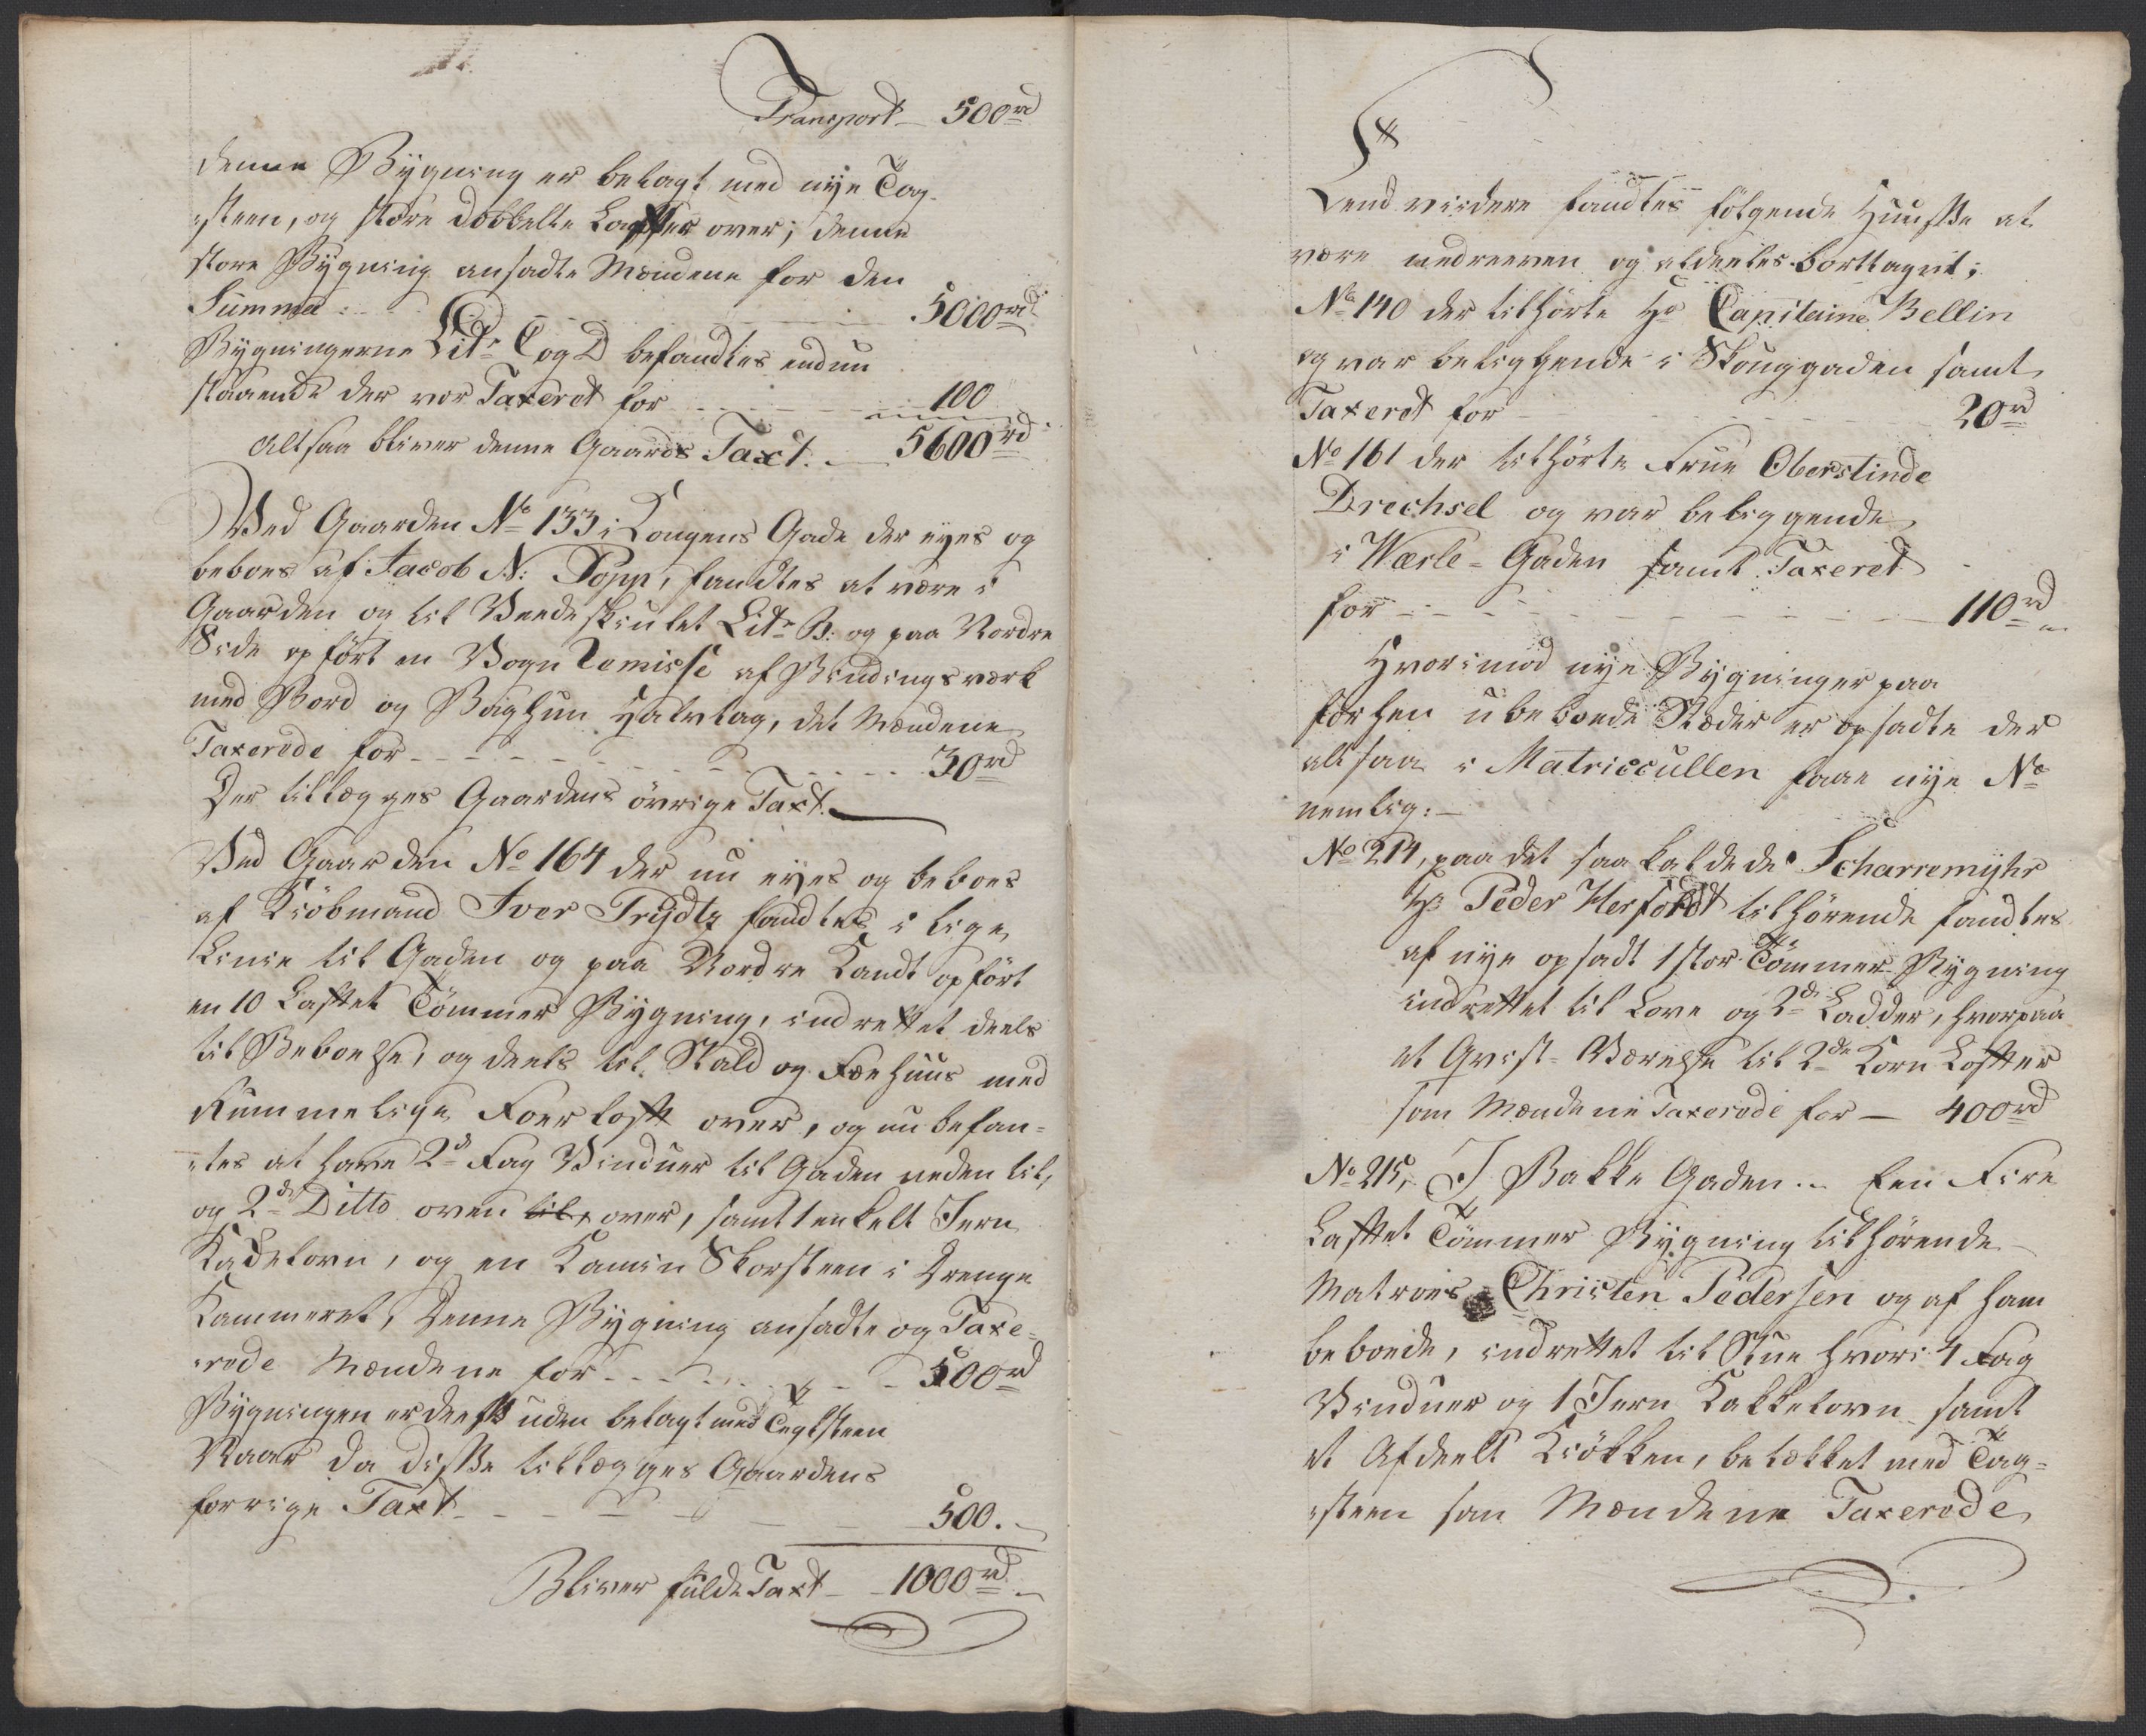 Transport – 500rd
denne Bÿgning er belagt med nÿe Tag-
steen, og store dobbelte Loffter over; denne
store Bÿgning ansadte Mændene for den
Summa 5000rd
Bÿgningerne Litr C og D befandtes endnu
staaende der var Taxeret for 100
Altsaa bliver denne Gaards Taxt. 5600rd
Ved Gaarden No 133 i Kongens Gade der eÿes og
beboes af Jacob N: Popp, fandtes at være i
Gaarden og til Veedeskiulet Litr B: og paa Nordre
Side opført en Vogn Remisse af Bindingsværk
med Bord og Baghun Halvtag, det Mændene
Taxerede for 30rd
Der tillægges Gaardens øvrige Taxt.
Ved Gaarden No 164 der nu eÿes og beboes
af Kiøbmand Iver Trÿdtz fandtes i lige
Linie til Gaden og paa Nordre Kandt opført
en 10 Laftet Tømmer Bÿgning, indrettet deels
til Beboelse, og deels til Stald og Fæehuus med
Rummelige Foerloft over, og nu befan-
tes at have 2de Fag Vinduer til Gaden neden til,
og 2de Ditto oven til, over, samt 1 enkelt Jern
Kackelovn, og en Kamin Skorsteen i Drenge
Kammeret, Denne Bÿgning ansadte og Taxe-
rede Mændene for 500rd
Bÿgningen er deels uden belagt med Teglsteen
Naar da disse tillægges Gaardens
forrige Taxt 500.
Bliver fulde Taxt – 1000rd
End viidere fandtes følgende Huuse at
være nedreeven og aldeeles borttaget;
No 140 der tilhørte Hr Capitaine Bellin
og var beliggende i Skouggaden samt
Taxeret for 20rd
No 161 der tilhørte Frue Oberstinde
Drechsel og var beliggende
i Wærle-Gaden samt Taxeret
for 110rd
Hvorimod nÿe Bÿgninger paa
forhen ubeboede Stæder er opsadte der
altsaa i Matriccullen faae nÿe No
nemlig:
No 214, paa det saa kaldede Scharremÿhr
Hr Peder Herfordt tilhørende fandtes
af nÿe opsadt 1 stor Tømmer Bÿgning
indrettet til Love og 2de Ladder, hvorpaa
et Qvist-Værelse til 2de Korn Loffter
som Mændene Taxerede for – 400rd
No 215, I Bakke Gaden. Een Fire
Laftet Tømmer Bÿgning tilhørende
Matroes Christen Pedersen og af ham
beboede, indrettet til Stue hvori 4 Fag
Vinduer og 1 Jern Kakkelovn samt
et Afdeelt Kiøkken, betækket med Tag-
steen som Mændene Taxerede